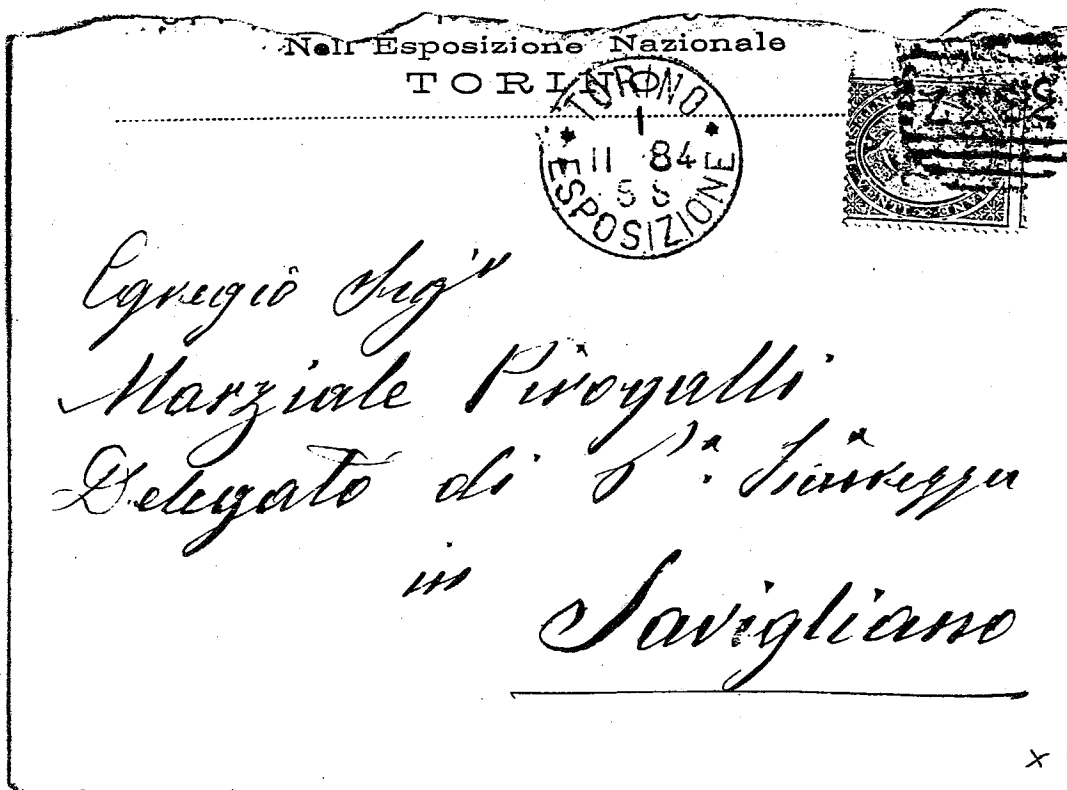 Nell' Esposizione Nazionale
TORINO
TORINO
1
11 84
5 S
ESPOSIZIONE
Egregio Sigr
Marziale Pirogalli
Delegato di Pa. Sicurezza
in
Savigliano
x